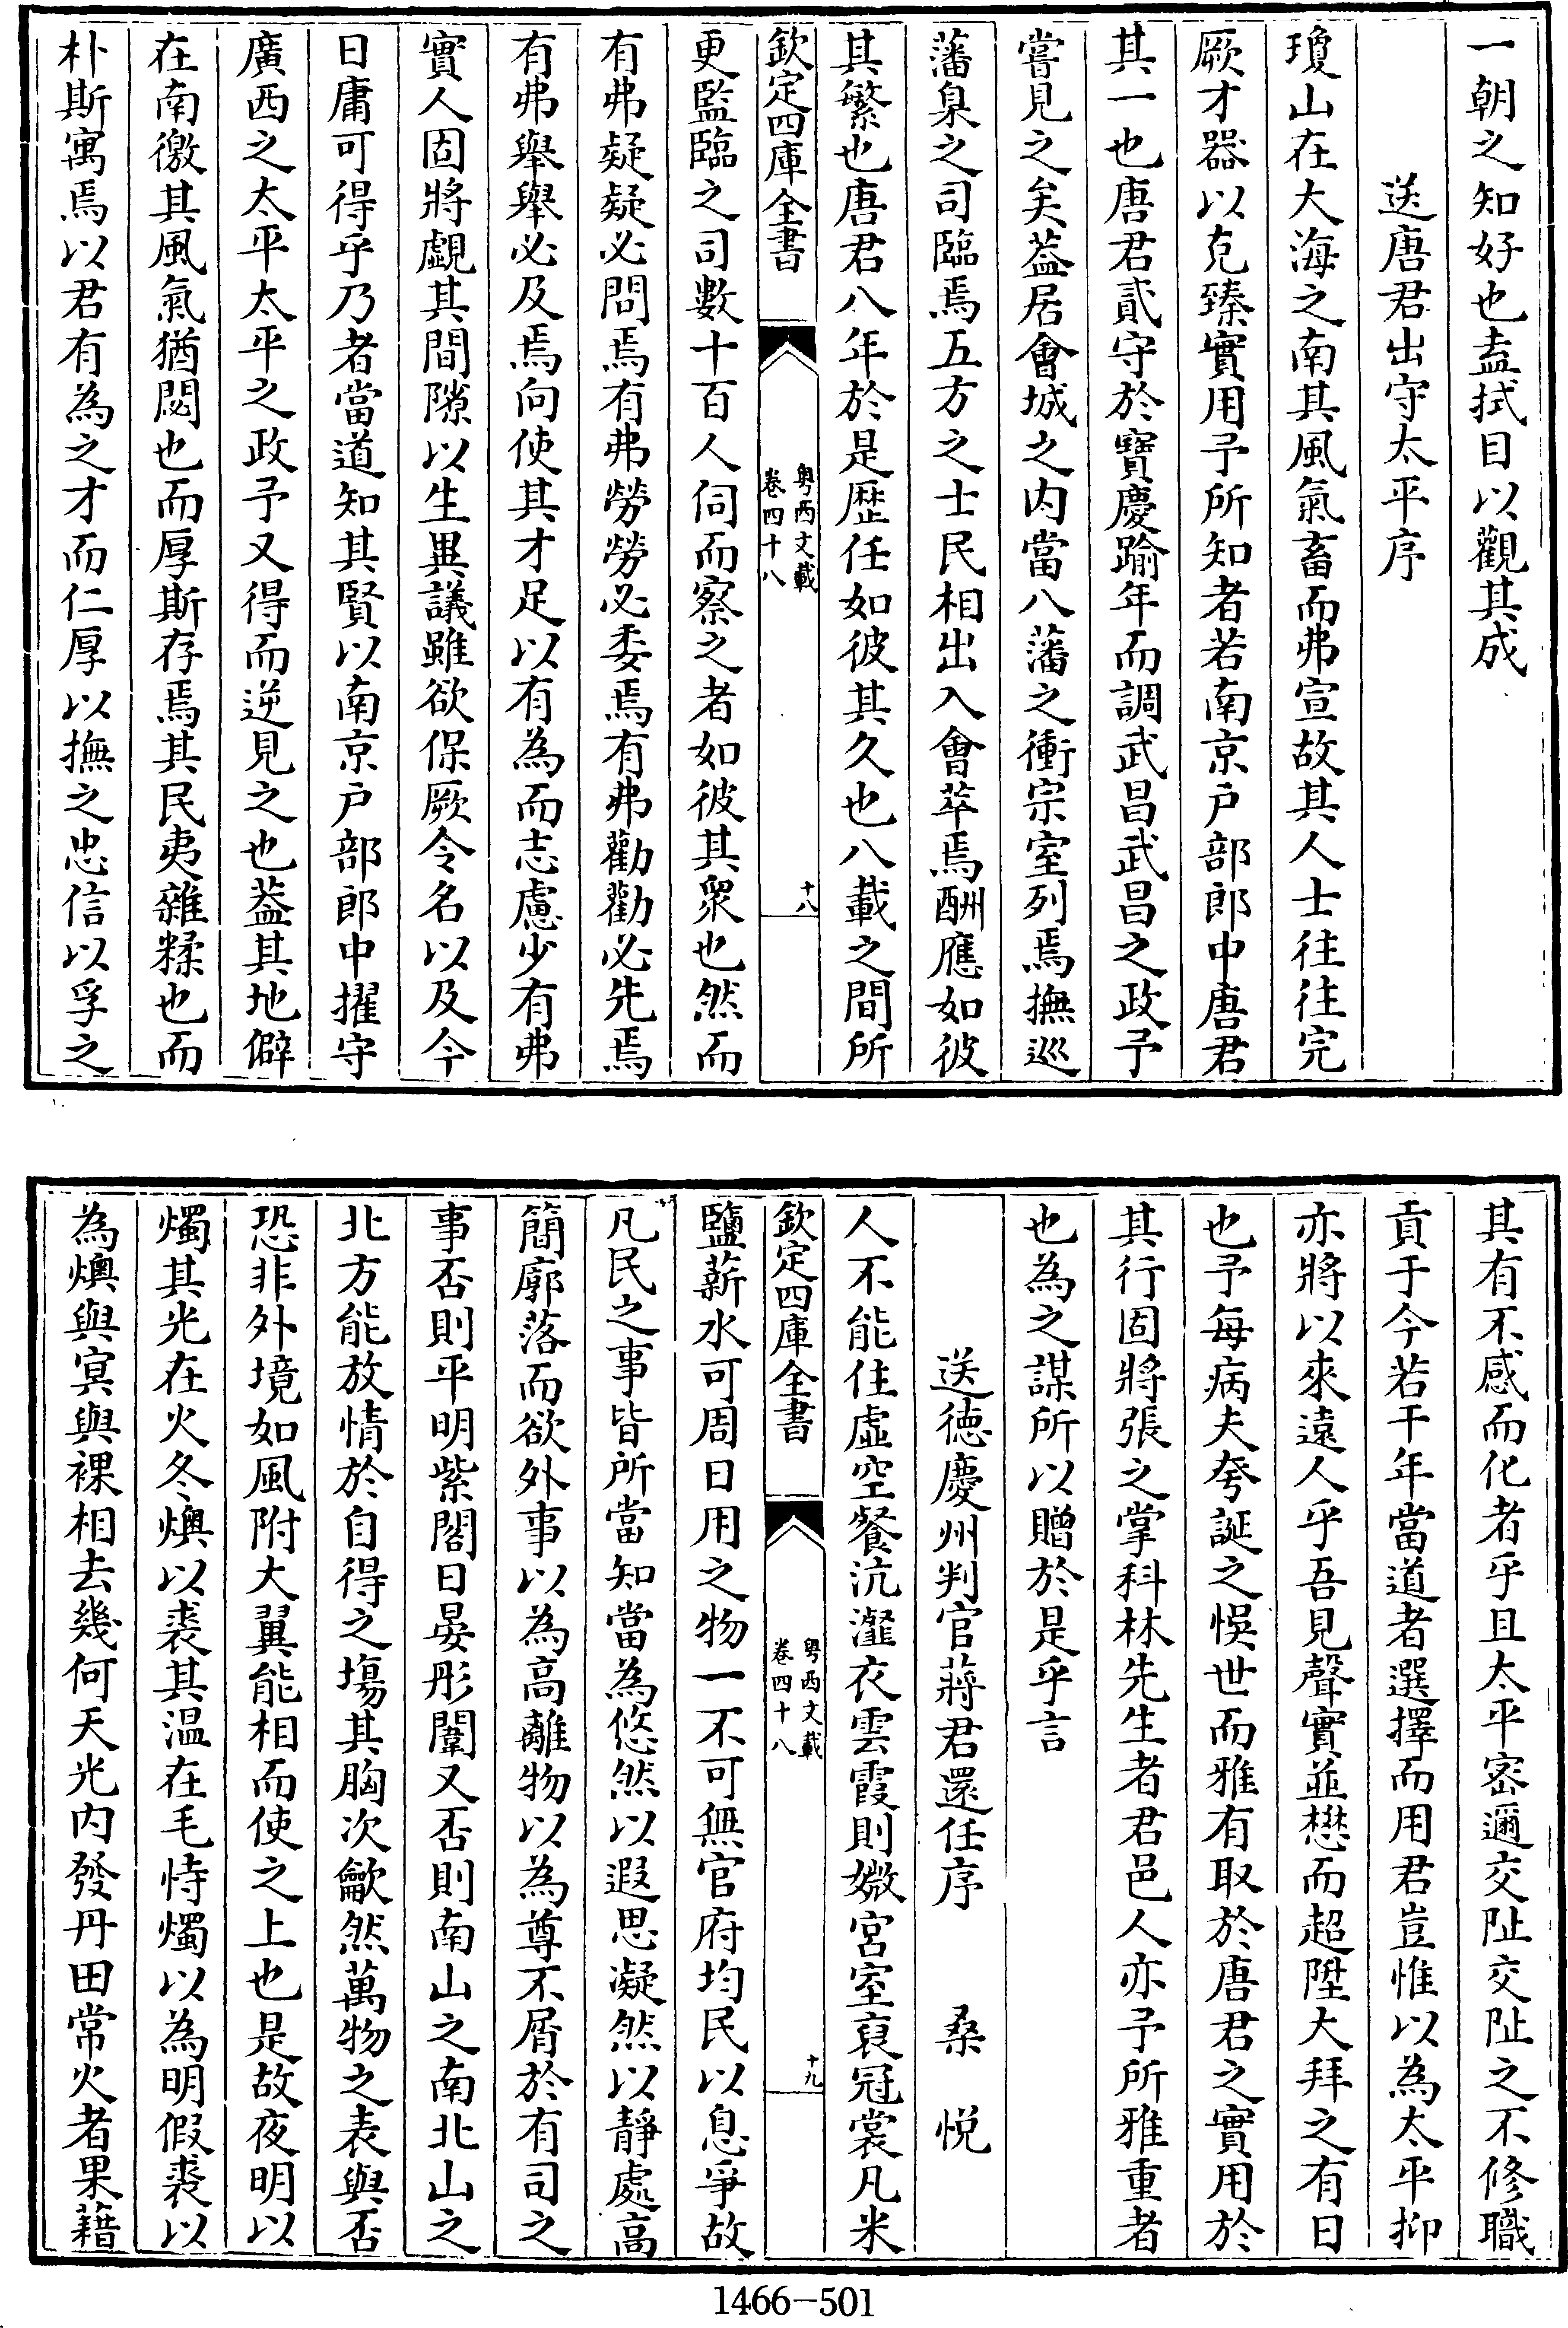 一朝之知好也盍拭目以觀其成
送唐君出守太平序
瓊山在大海之南其風氣畜而弗宣故其人士往往完
厥才器以克臻實用予所知者若南京户部郎中唐君
其一也唐君貳守於寶慶踰年而調武昌武昌之政予
嘗見之矣葢居會城之内當八藩之衝宗室列焉撫巡
藩臬之司臨焉五方之士民相出入會萃焉酬應如彼
其繁也唐君八年於是歴任如彼其久也八載之間所
欽定四庫全書
粤西文載
卷四十八
十八
更監臨之司數十百人伺而察之者如彼其衆也然而
有弗疑疑必問焉有弗勞勞必委焉有弗勸勸必先焉
有弗舉舉必及焉向使其才足以有為而志慮少有弗
實人固將覷其間隙以生異議雖欲保厥令名以及今
日庸可得乎乃者當道知其賢以南京户部郎中擢守
廣西之太平太平之政予又得而逆見之也葢其地僻
在南徼其風氣猶閟也而厚斯存焉其民夷雜糅也而
朴斯寓焉以君有為之才而仁厚以撫之忠信以孚之
其有不感而化者乎且太平宻邇交阯交阯之不修職
貢于今若干年當道者選擇而用君豈惟以為太平抑
亦將以來遠人乎吾見聲實並懋而超陞大拜之有日
也予每病夫夸誕之悞世而雅有取於唐君之實用於
其行固將張之掌科林先生者君邑人亦予所雅重者
也為之謀所以贈於是乎言
送徳慶州判官蔣君還任序　桑悦
人不能住虚空餐沆瀣衣雲霞則媺宫室裒冠裳凡米
欽定四庫全書
粤西文載
卷四十八
十九
鹽薪水可周日用之物一不可無官府均民以息爭故
凡民之事皆所當知當為悠然以遐思凝然以靜處高
簡廓落而欲外事以為高離物以為尊不屑於有司之
事否則平明紫閣日晏彤闈又否則南山之南北山之
北方能放情於自得之塲其胸次歉然萬物之表與否
恐非外境如風附大翼能相而使之上也是故夜明以
燭其光在火冬燠以裘其温在毛恃燭以為明假裘以
為燠與㝠與裸相去幾何天光内發丹田常火者果藉
1466—501